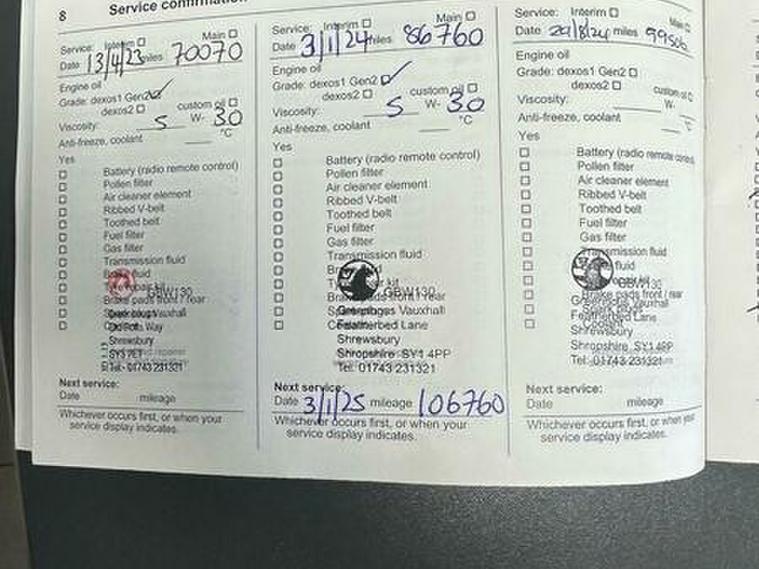 8 Service confirmation
Service: Interim Main
Date 13/4/23 miles 70070
Engine oil
Grade: dexos1 Gen2
custom oil
Viscosity: 5 W- 30
Anti-freeze, coolant °C
Yes
Battery (radio remote control)
Pollen filter
Air cleaner element
Ribbed V-belt
Toothed belt
Fuel filter
Gas filter
Transmission fluid
GBW130
Brake pads front / rear
Vauxhall
Way
Shrewsbury
SY3 7ET
Tel: 01743 231321
Next service:
Date mileage
Whichever occurs first, or when your
service display indicates.
Service: Interim Main
Date 3/1/24 miles 86760
Engine oil
Grade: dexos1 Gen2
dexos2 custom oil
Viscosity: 5 W- 30
Anti-freeze, coolant °C
Yes
Battery (radio remote control)
Pollen filter
Air cleaner element
Ribbed V-belt
Toothed belt
Fuel filter
Gas filter
Transmission fluid
GBW130
Brake pads front / rear
Greenhous Vauxhall
Featherbed Lane
Shrewsbury
Shropshire SY1 4PP
Tel: 01743 231321
Next service:
Date 3/1/25 mileage 106760
Whichever occurs first, or when your
service display indicates.
Service: Interim Main
Date /8/24 miles
Engine oil
Grade: dexos1 Gen2
dexos2 custom oil
Viscosity: W-
Anti-freeze, coolant °C
Yes
Battery (radio remote control)
Pollen filter
Air cleaner element
Ribbed V-belt
Toothed belt
Fuel filter
Gas filter
Transmission fluid
fluid
GBW130
Brake pads front / rear
Greenhous Vauxhall
Featherbed Lane
Shrewsbury
Shropshire SY1 4PP
Tel: 01743 231321
Next service:
Date mileage
Whichever occurs first, or when your
service display indicates.